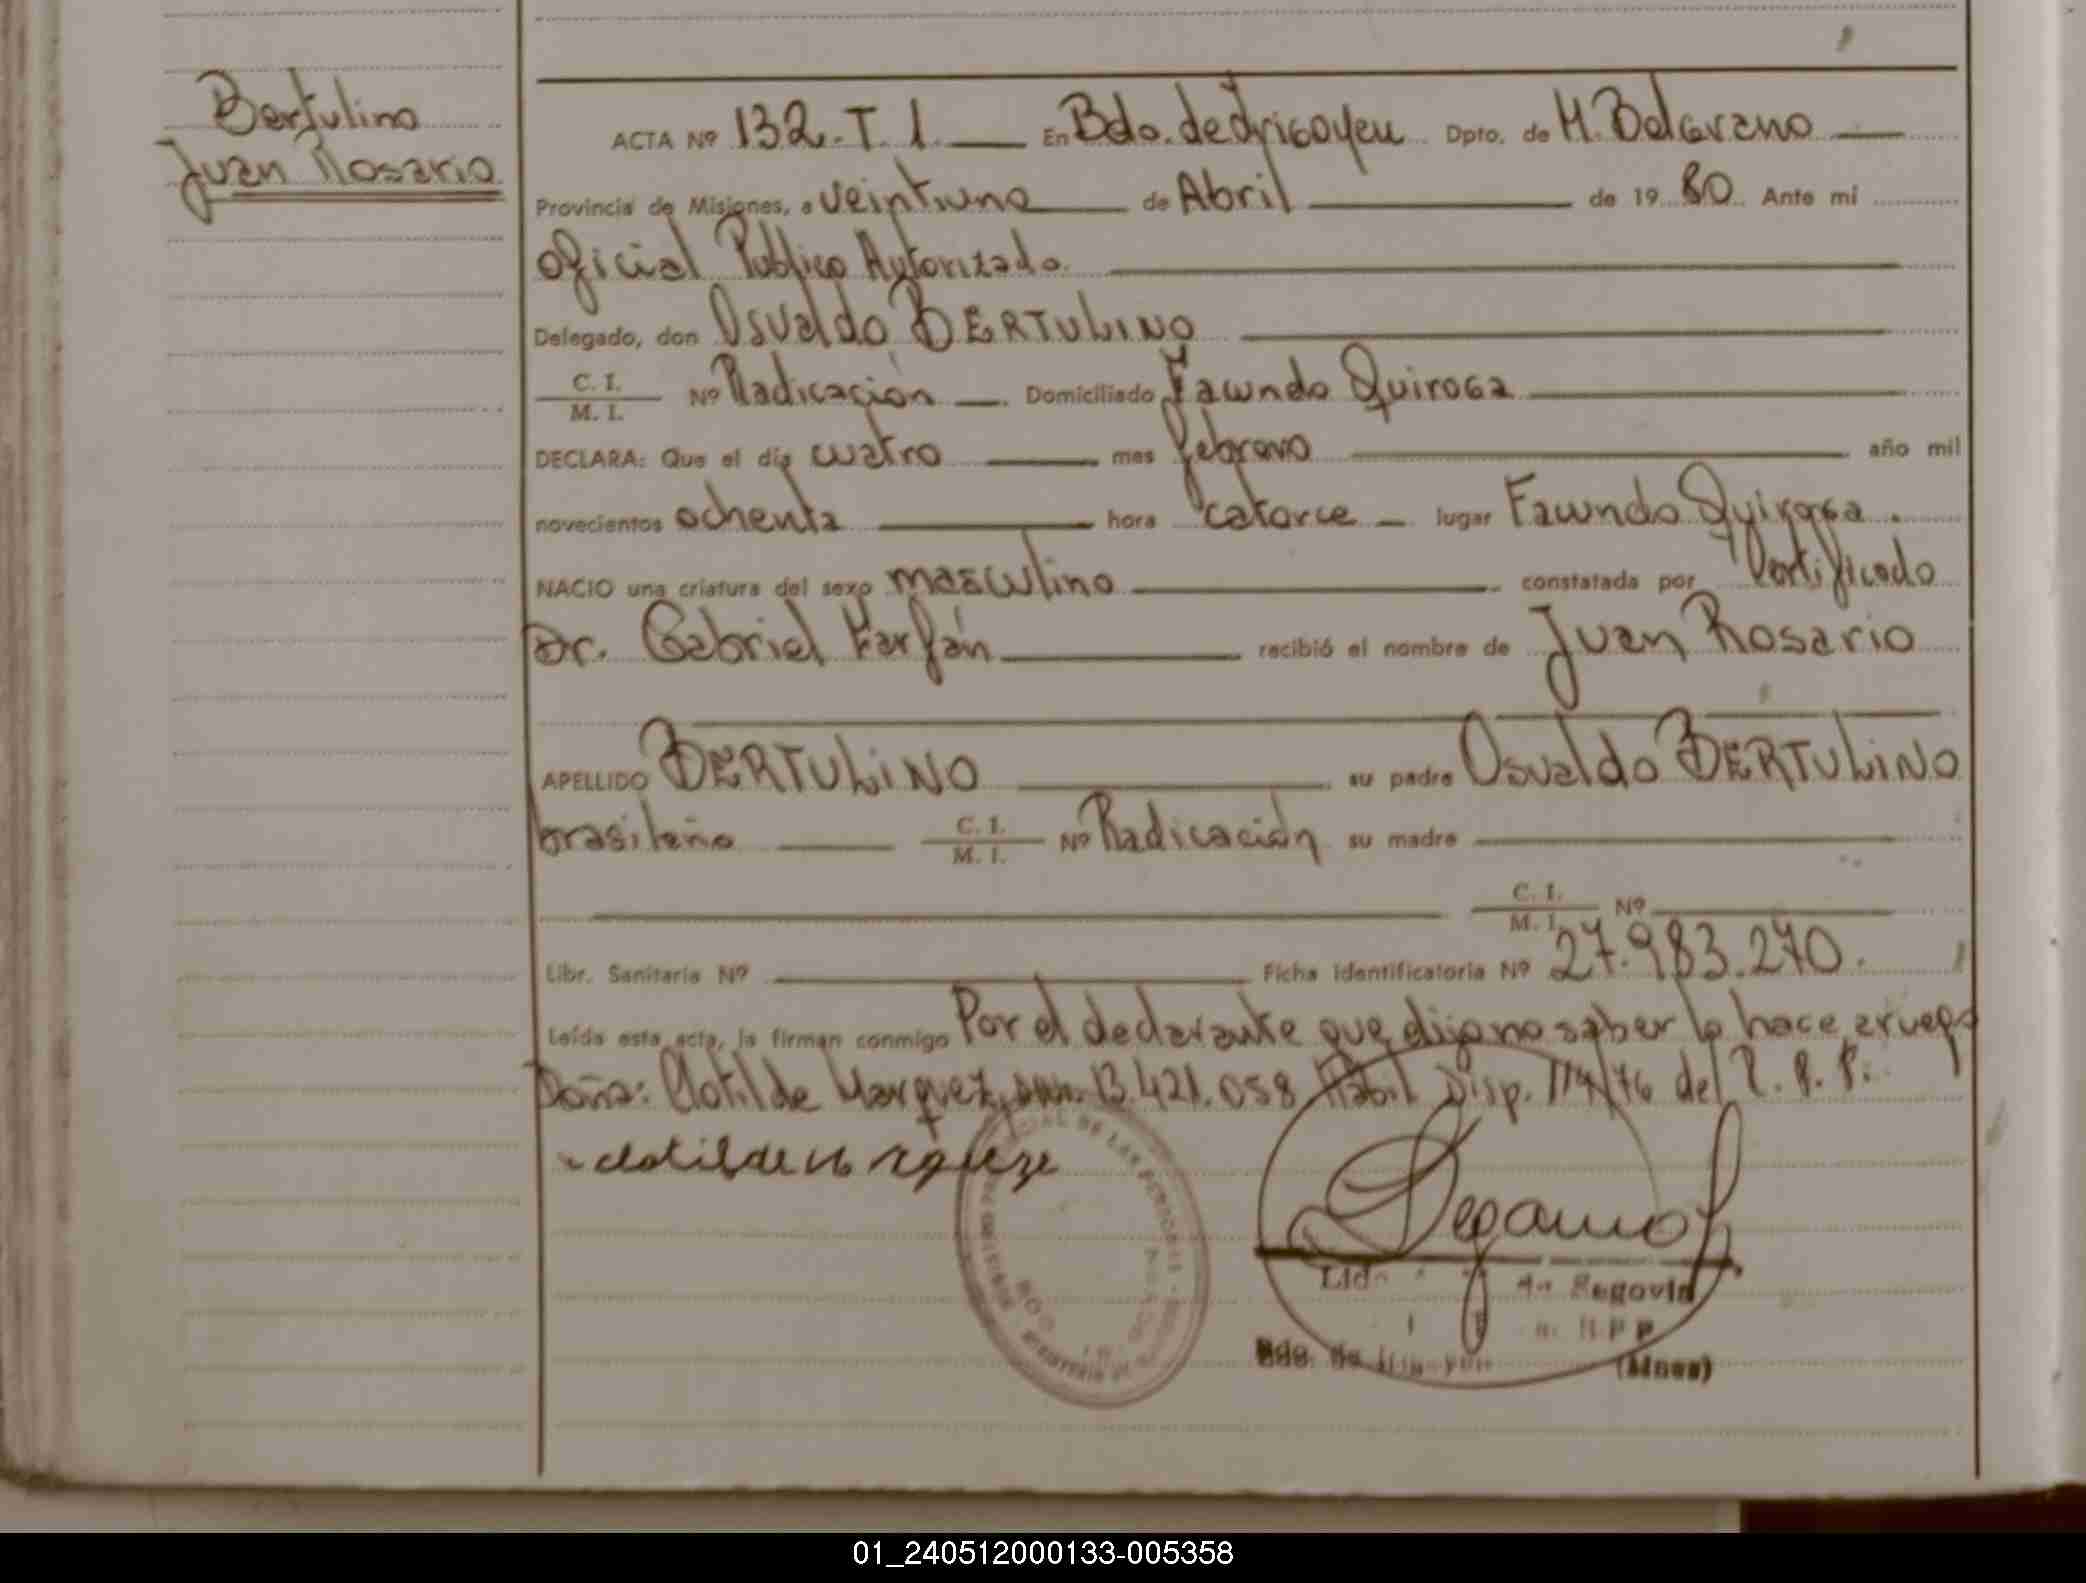 Bertulino
Juan Rosario
ACTA Nº 132. T. 1. En Bdo. de Yrigoyen Dpto. de M. Belgrano
Provincia de Misiones, a veintiuno de Abril de 19 80 Ante mi
Oficial Público Autorizado
Delegado, don Osvaldo BERTULINO
C. I.
M. I. Nº Radicación Domiciliado Facundo Quiroga
DECLARA: Que el día cuatro mes febrero año mil
novecientos ochenta hora catorce lugar Facundo Quiroga.
NACIO una criatura del sexo masculino constatada por Certificado
Dr. Gabriel Farfán recibió el nombre de Juan Rosario
APELLIDO BERTULINO su padre Osvaldo BERTULINO
brasileño C. I.
M. I. Nº Radicación su madre
C. I.
M. I. Nº
Libr. Sanitaria Nº Ficha identificatoria Nº 27.983.270.
Leída esta acta, la firman conmigo Por el declarante que dijo no saber lo hace a ruego
Doña: Clotilde Marquez, 13.421.058 Habil Disp. 114/76 del R. P. P.
Segovia
R P P
Bdo. de (Mnes)
01_240512000133-005358